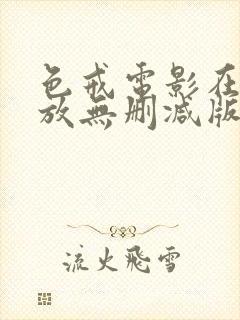 色戒電影在
放無删減版
流火飛雪